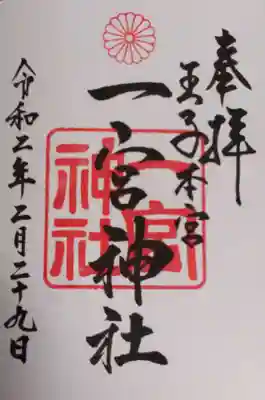 奉拝
王子本宮
一宮神社
一宮神社
令和二年二月二十九日